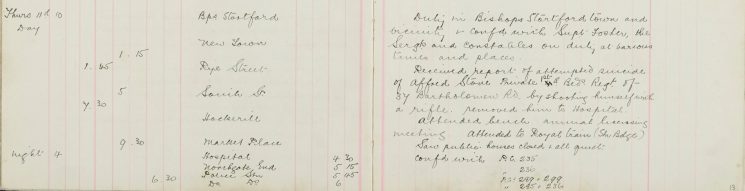 Thurs 11d 10 Bps Stortford
Day
New Town
1. 15
1. 45 Rye Street
5 South St
7 30
Hockerill
9. 30 Market Place
Night 4 Hospital 4 30
Northgate End 5 15
6 30 Police Stn 5 45
Do Do 6
Duty in Bishops Stortford town and
vicinity & confd with Supt Foster, the
Sergts and Constables on duty at various
times and places.
Received report of attempted suicide
of Alfred Stone Private Beds Regt of
37 Bartholomew Rd by shooting himself with
a rifle. removed him to Hospital.
Attended bench annual licensing
meeting. Attended to Royal train
Saw public houses closed & all quiet
Confd with P.C. 235
" 230
P.Ss 249 & 299
" 245 & 236
13